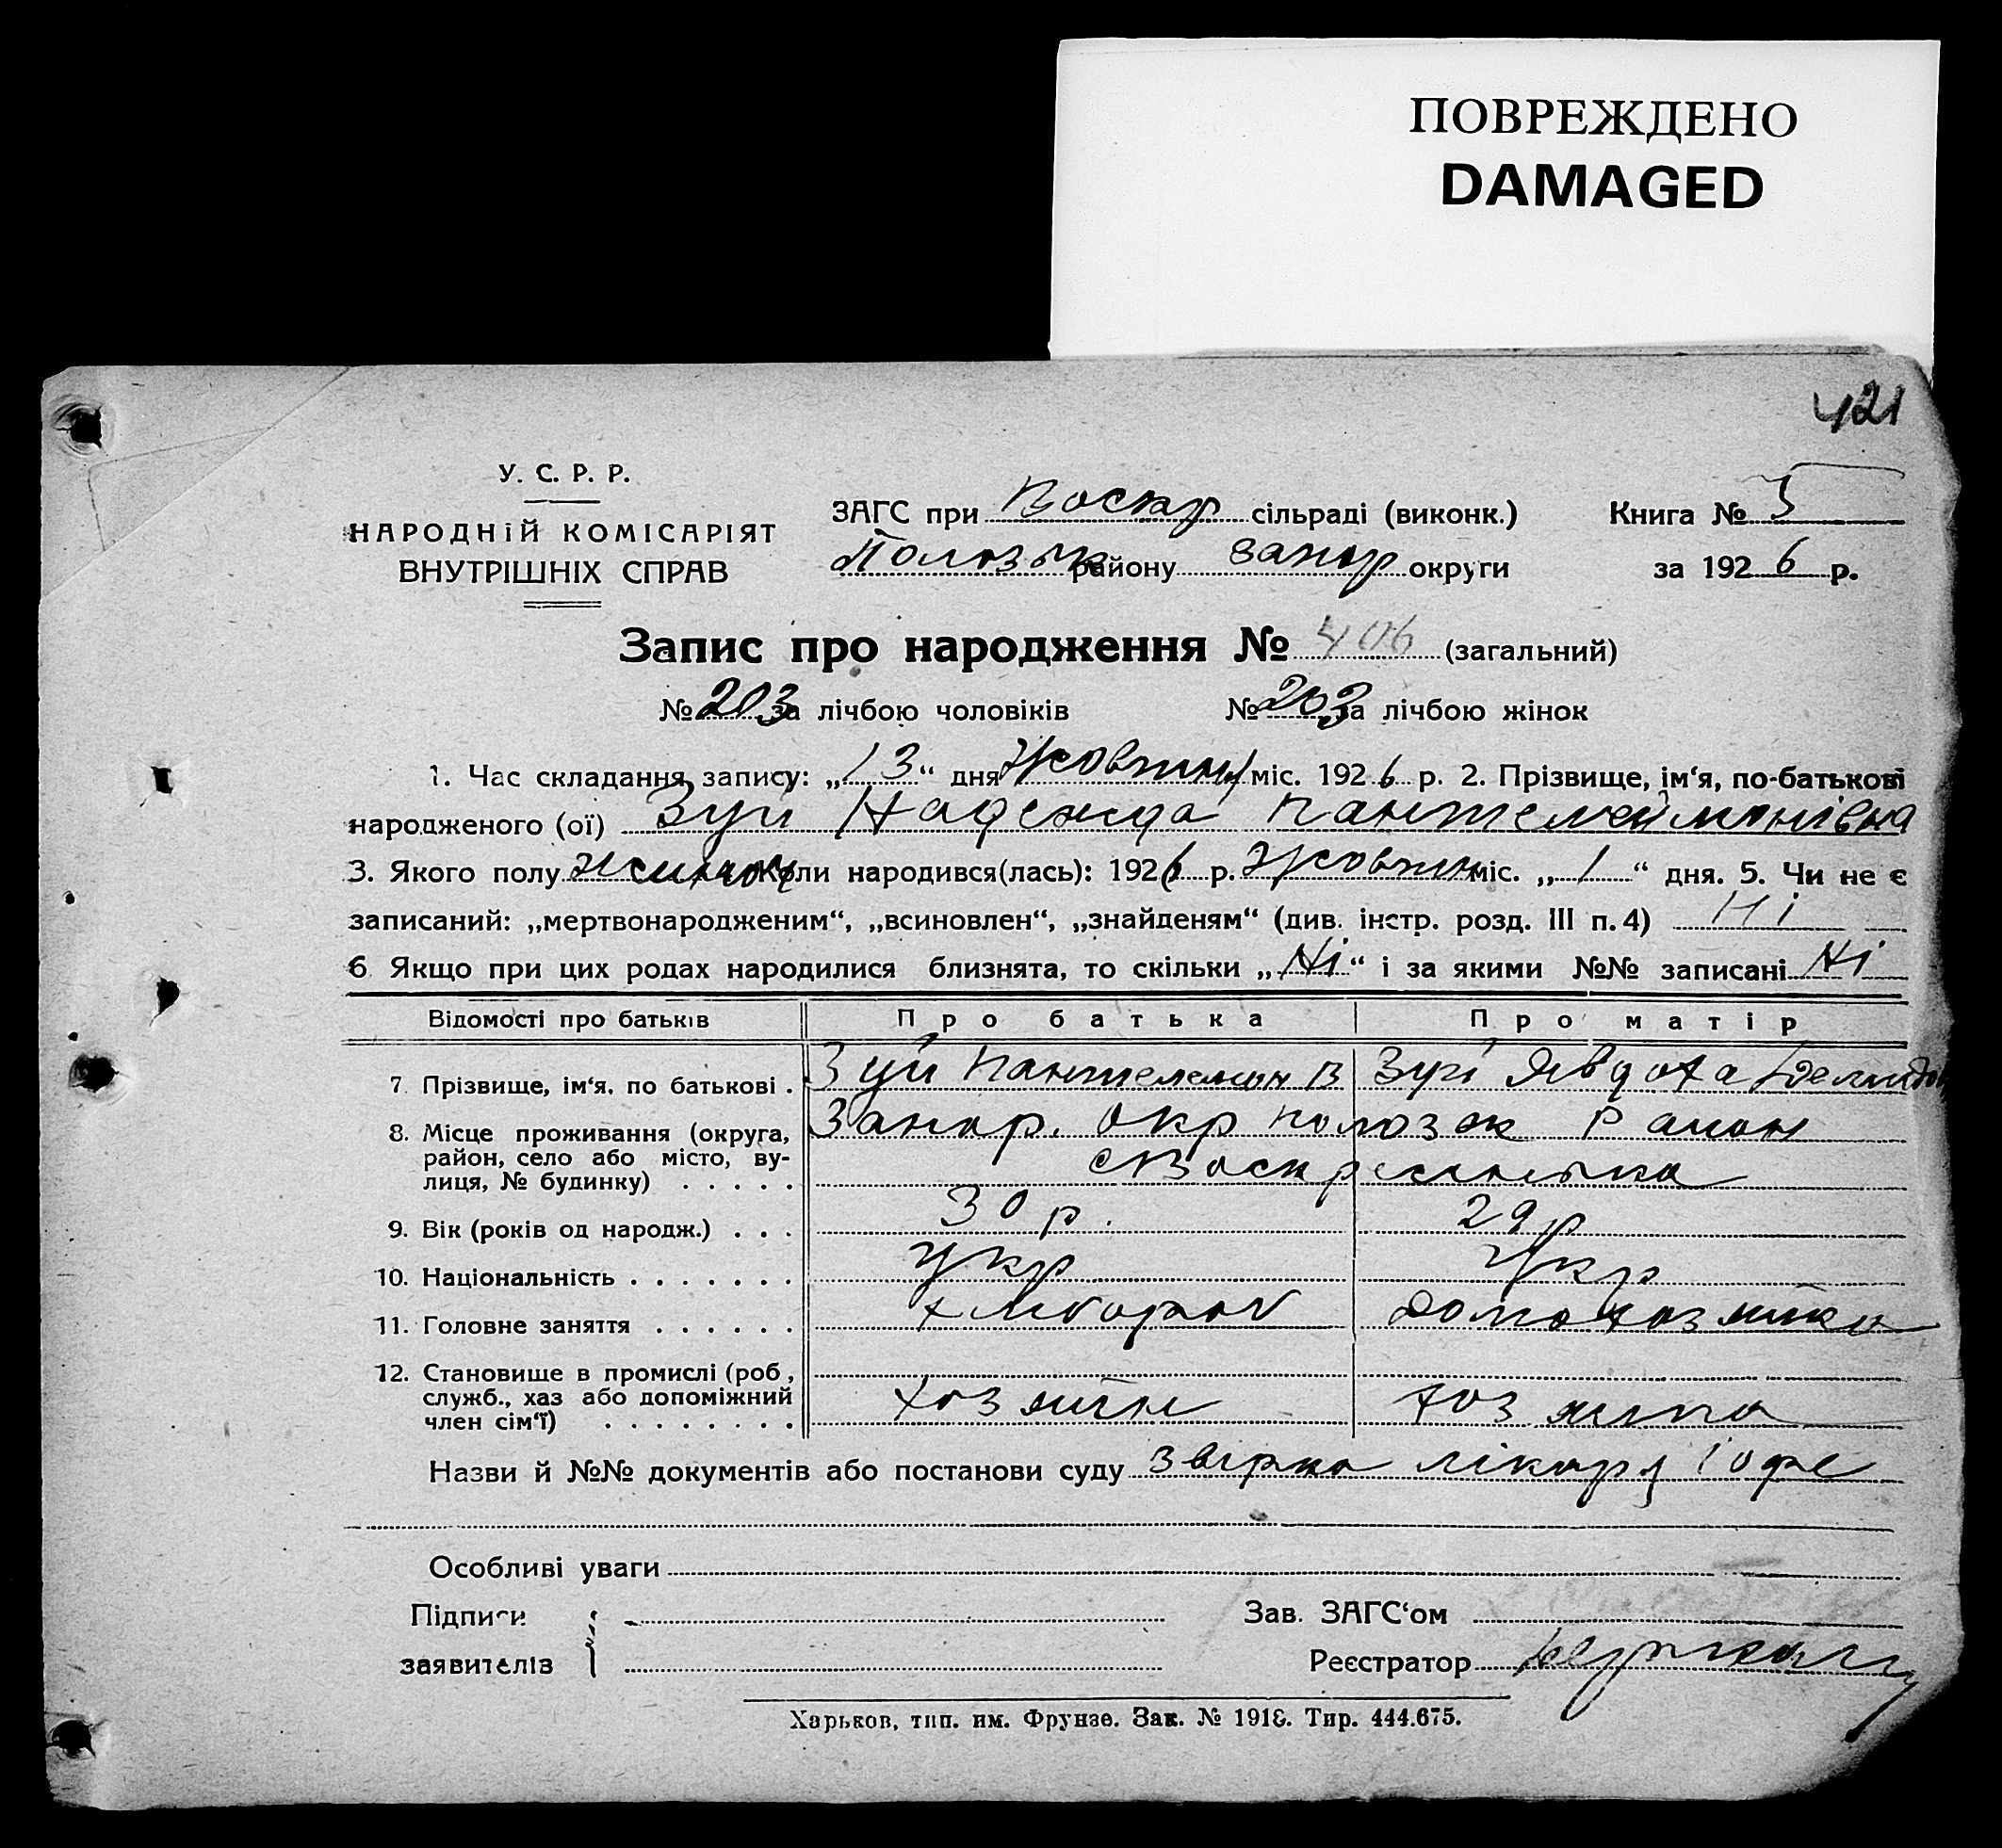 ПОВРЕЖДЕНО
DAMAGED
421
У. С. Р. Р.
НАРОДНІЙ КОМІСАРІЯТ
ВНУТРІШНІХ СПРАВ
ЗАГС при Воскр сільраді (виконк.)
Полозьк району Запор округи
Книга № 5
за 1926 р.
Запис про народження № 406 (загальний)
№ 203 за лічбою чоловіків № 203 за лічбою жінок
1. Час складання запису: „13“ дня Жовтня міс. 1926 р. 2. Прізвище, ім‘я, по-батькові
народженого (ої) Зуй Надежда Пантелеймонівна
3. Якого полу жіноч Коли народився(лась): 1926 р. Жовтн міс. „1“ дня. 5. Чи не є
записаний: „мертвонародженим“, „всиновлен“, „знайденям“ (див. інстр. розд. III п. 4) Ні
6 Якщо при цих родах народилися близнята, то скільки „Ні“ і за якими №№ записані Ні
Відомості про батьків Про батька Про матір
7. Прізвище, ім‘я, по батькові . Зуй Пантелемон В Зуй Явдоха Демидов
8. Місце проживання (округа, Запор. окр Полозьк Район
район, село або місто, ву-
лиця, № будинку) . . . . . с Воскресенька
9. Вік (років од народж.) . . . 30 р. 29 р
10. Національність . . . . . . . Укр Укр
11. Головне заняття . . . . . . хлібороб домохозяйка
12. Становище в промислі (роб,
служб., хаз або допоміжний
член сім‘ї) . . . . . . . . хозяин хозяйка
Назви й №№ документів або постанови суду звірка лікаря Гофе
Особливі уваги
Підписи
заявителів
Зав. ЗАГС‘ом
Реєстратор
Харьков, тип. им. Фрунзе. Зак. № 1918. Тир. 444.675.